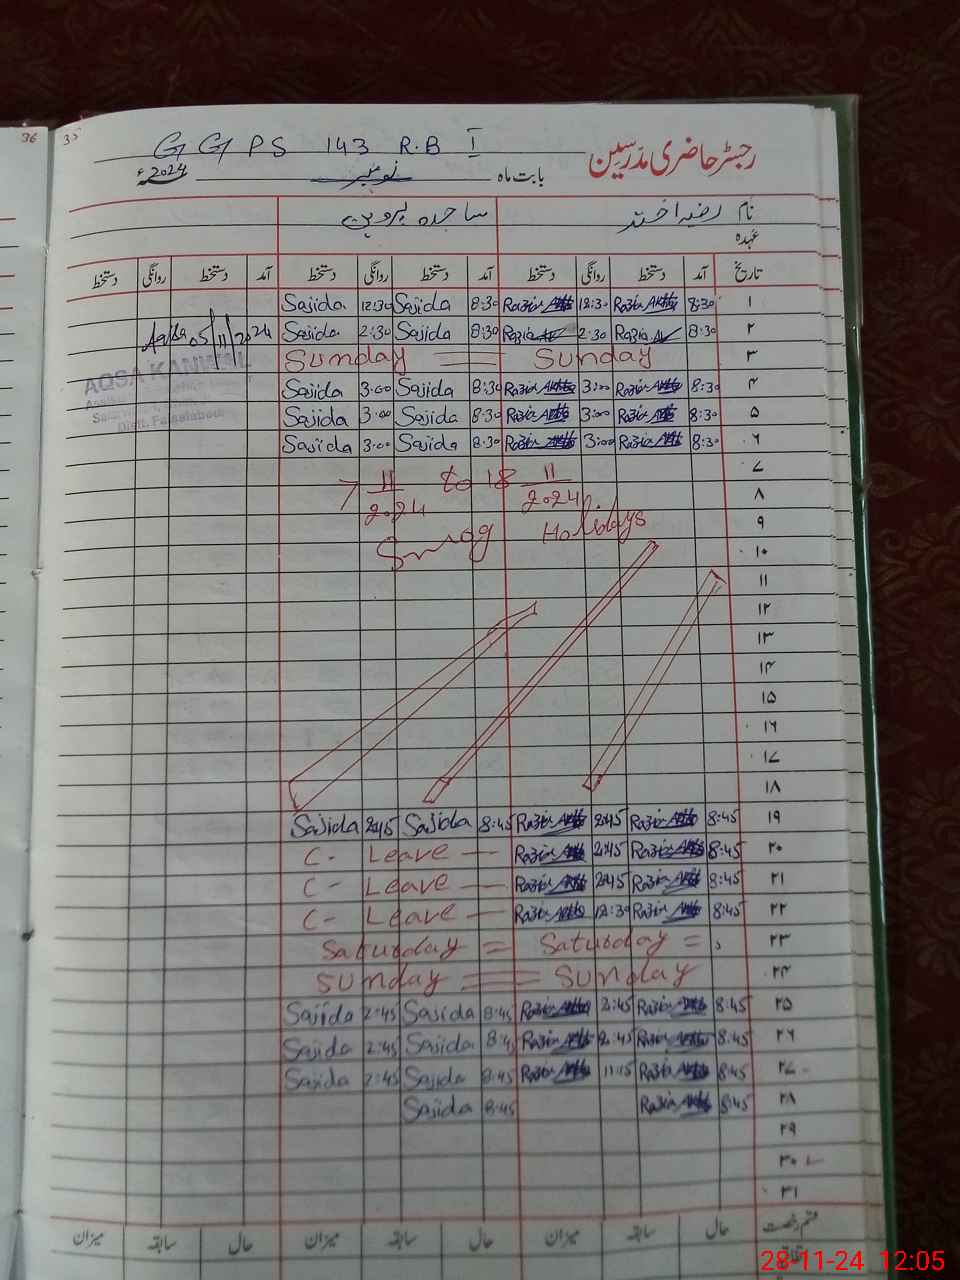 36 35
GGPS 143 R.B I
رجسٹر حاضری مدرسین
بابت ماہ نومبر 2024ء
نام رضیہ اختر ساجدہ پروین
عہدہ
تاریخ آمد دستخط روانگی دستخط آمد دستخط روانگی دستخط آمد دستخط روانگی دستخط
Sajida 12:30 Sajida 8:30 Razia Akhtar 12:30 Razia Akhtar 8:30 ۱
Aqsa 05/11/2024 Sajida 2:30 Sajida 8:30 Razia 2:30 Razia 8:30 ۲
Sunday = Sunday ۳
AQSA KANWAL
Sajida 3:00 Sajida 8:30 Razia Akhtar 3:00 Razia Akhtar 8:30 ۴
Sajida 3:00 Sajida 8:30 Razia Akhtar 3:00 Razia Akhtar 8:30 ۵
Distt. Faisalabad
Sajida 3:00 Sajida 8:30 Razia Akhtar 3:00 Razia Akhtar 8:30 ۶
۷
7 11/2024 to 18 11/2024 ۸
Smog Holidays ۹
۱۰
۱۱
۱۲
۱۳
۱۴
۱۵
۱۶
۱۷
۱۸
Sajida 2:45 Sajida 8:45 Razia Akhtar 2:45 Razia Akhtar 8:45 ۱۹
C- Leave — Razia Akhtar 2:45 Razia Akhtar 8:45 ۲۰
C- Leave — Razia Akhtar 2:45 Razia Akhtar 8:45 ۲۱
C- Leave — Razia Akhtar 12:30 Razia Akhtar 8:45 ۲۲
Saturday = Saturday = ۲۳
Sunday = Sunday ۲۴
Sajida 2:45 Sajida 8:45 Razia Akhtar 2:45 Razia Akhtar 8:45 ۲۵
Sajida 2:45 Sajida 8:45 Razia Akhtar 2:45 Razia Akhtar 8:45 ۲۶
Sajida 2:45 Sajida 8:45 Razia Akhtar 11:15 Razia Akhtar 8:45 ۲۷
Sajida 8:45 Razia Akhtar 8:45 ۲۸
۲۹
۳۰
۳۱
قسم رخصت حال سابقہ میزان حال سابقہ میزان حال سابقہ میزان
28-11-24 12:05